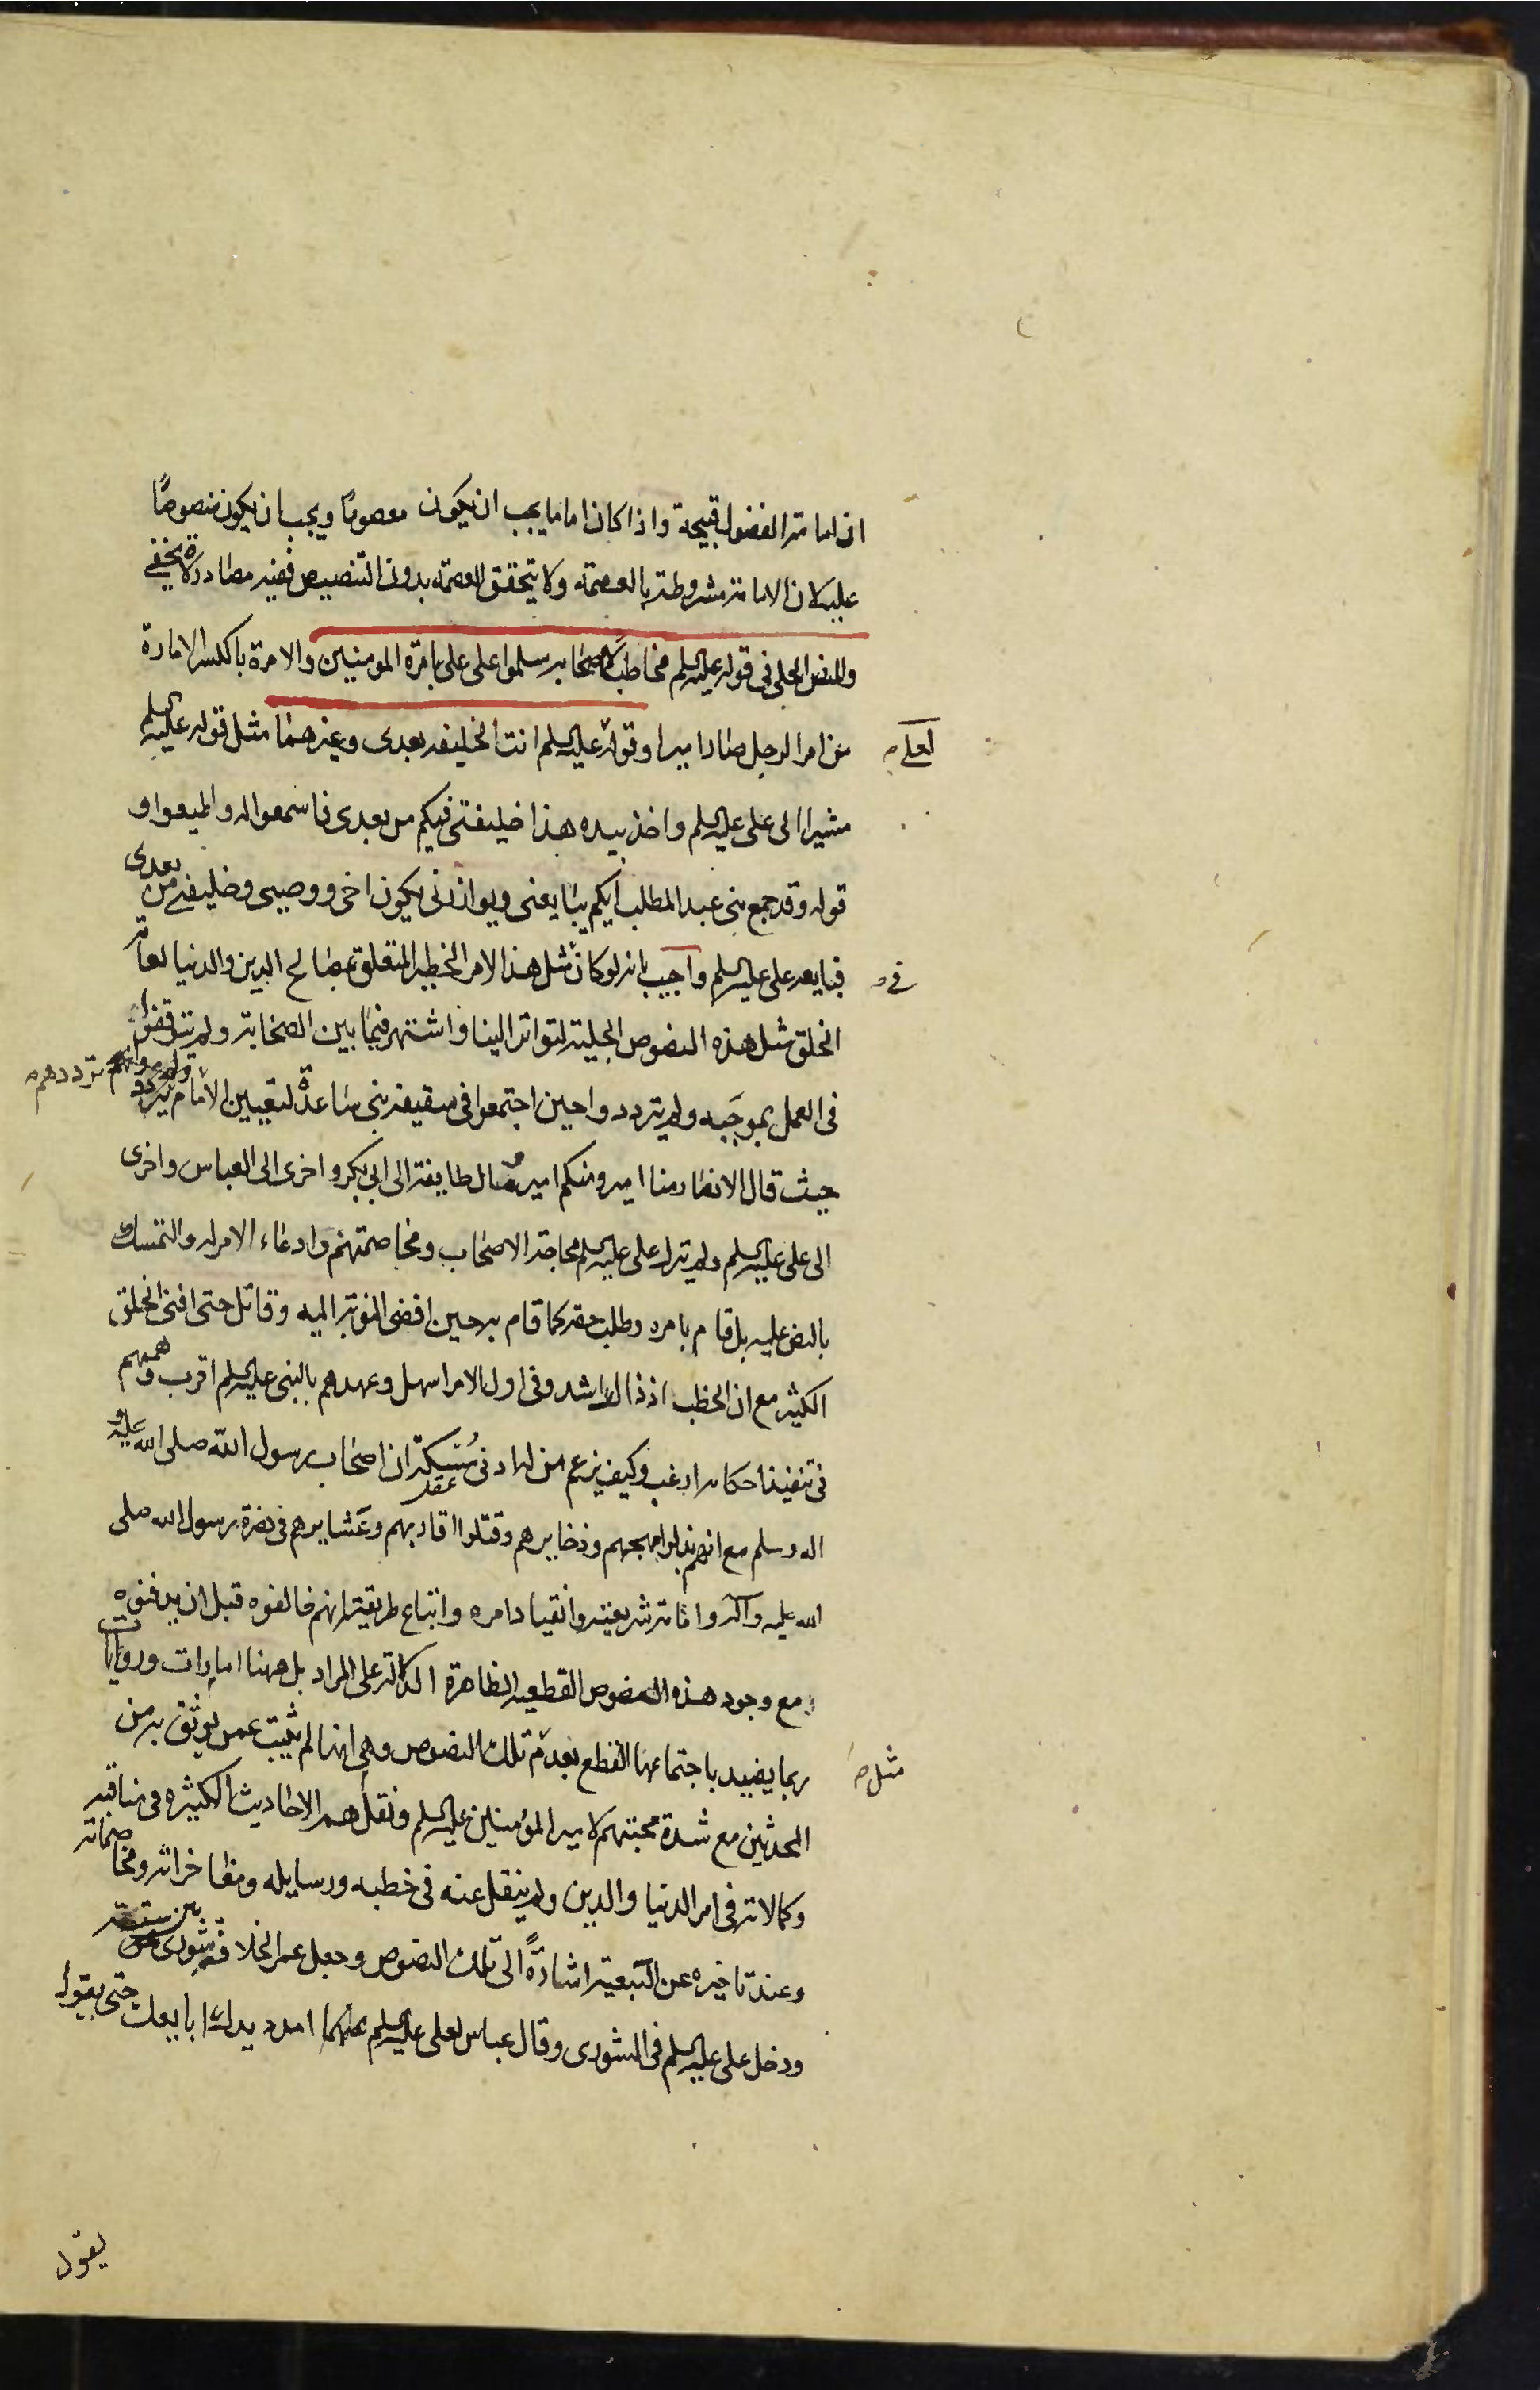 ان امامة المفضول قبيحة واذا كان اماما يجب ان يكون معصوما ويجب ان يكون منصوصًا
عليه لان الامامة مشروطة بالعصمة ولا يتحقق العصمة بدون التنصيص ففيه مصادرة لا يخفى
وللنص الجلى فى قوله عليه السلم مخاطبًا لاصحابه سلموا على على بامرة المومنين والامرة بالكسر الامارة
من امر الرجل صار اميرا وقوله عليه السلم انت الخليفه بعدى وغيرهما مثل قوله عليه السلم
لعلى
مشيرا الى على عليه السلم واخذ بيده هذا خليفتى فيكم من بعدى فاسمعوا له واطيعوا و
قوله وقد جمع بنى عبد المطلب ايكم يبايعنى ويوازرنى يكون اخى ووصيى وخليفتى من بعدى
فبايعه على عليه السلم واجيب بانه لو كان مثل هذا الامر الخطير المتعلق بمصالح الدين والدنيا لعامة
فى
الخلق مثل هذه النصوص الجلية لتواتر الينا واشتهر فيما بين الصحابة ولم يتوقفوا
فى العمل بموجبه ولم يترددوا حين اجتمعوا فى سقيفة بنى ساعدة لتعيين الامام
ترددهم
حيث قال الانصار منا امير ومنكم امير ومال طايفة الى ابى بكر واخرى الى العباس واخرى
الى على عليه السلم ولم يترك على عليه السلم محاجة الاصحاب ومخاصمتهم وادعاء الامر له والتمسك
بالنص عليه بل قام بامره وطلب حقه كما قام به حين افضى النوبة اليه وقاتل حتى افنى الخلق
الكثير مع ان الخطب اذ ذاك اشد وفى اول الامر اسهل وعهدهم بالنبى عليه السلم اقرب وهممهم
فى تنفيذ احكامه ارغب وكيف يزعم من له ادنى مسكة ان اصحاب رسول الله صلى الله عليه و
عقد
اله وسلم مع انهم بذلوا مهجهم وذخايرهم وقتلوا اقاربهم وعشايرهم فى نصرة رسول الله صلى
الله عليه وآله واقامة شريعته وانقياد امره واتباع طريقته انهم خالفوه قبل ان يدفنوه
مع وجود هذه النصوص القطعيه الظاهرة الدالة على المراد بل ههنا امارات وروايات
ربما يفيد باجتماعها القطع بعدم تلك النصوص وهى انها لم يثبت عمن يوثق به من
مثل
المحدثين مع شدة محبتهم لامير المؤمنين عليه السلم ونقلهم الاحاديث الكثيره فى مناقبه
وكمالاته فى امر الدنيا والدين ولم ينقل عنه فى خطبه ورسايله ومفاخراته ومخاصماته
وعند تاخيره عن البيعة اشارةً الى تلك النصوص وجعل عمر الخلافة شورى بين ستة
ودخل على عليه السلم فى الشورى وقال عباس لعلى عليه السلم امدد يدك ابايعك حتى يقول
يقول